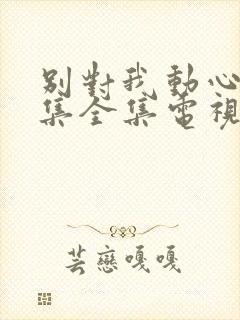 別對我動心
集全集電視
芸戀嘎嘎